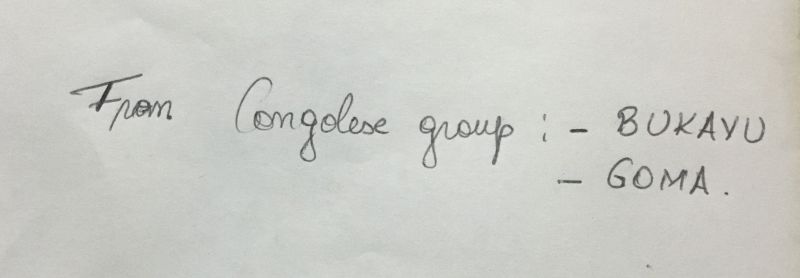 From Congolese group : - BUKAVU
- GOMA.